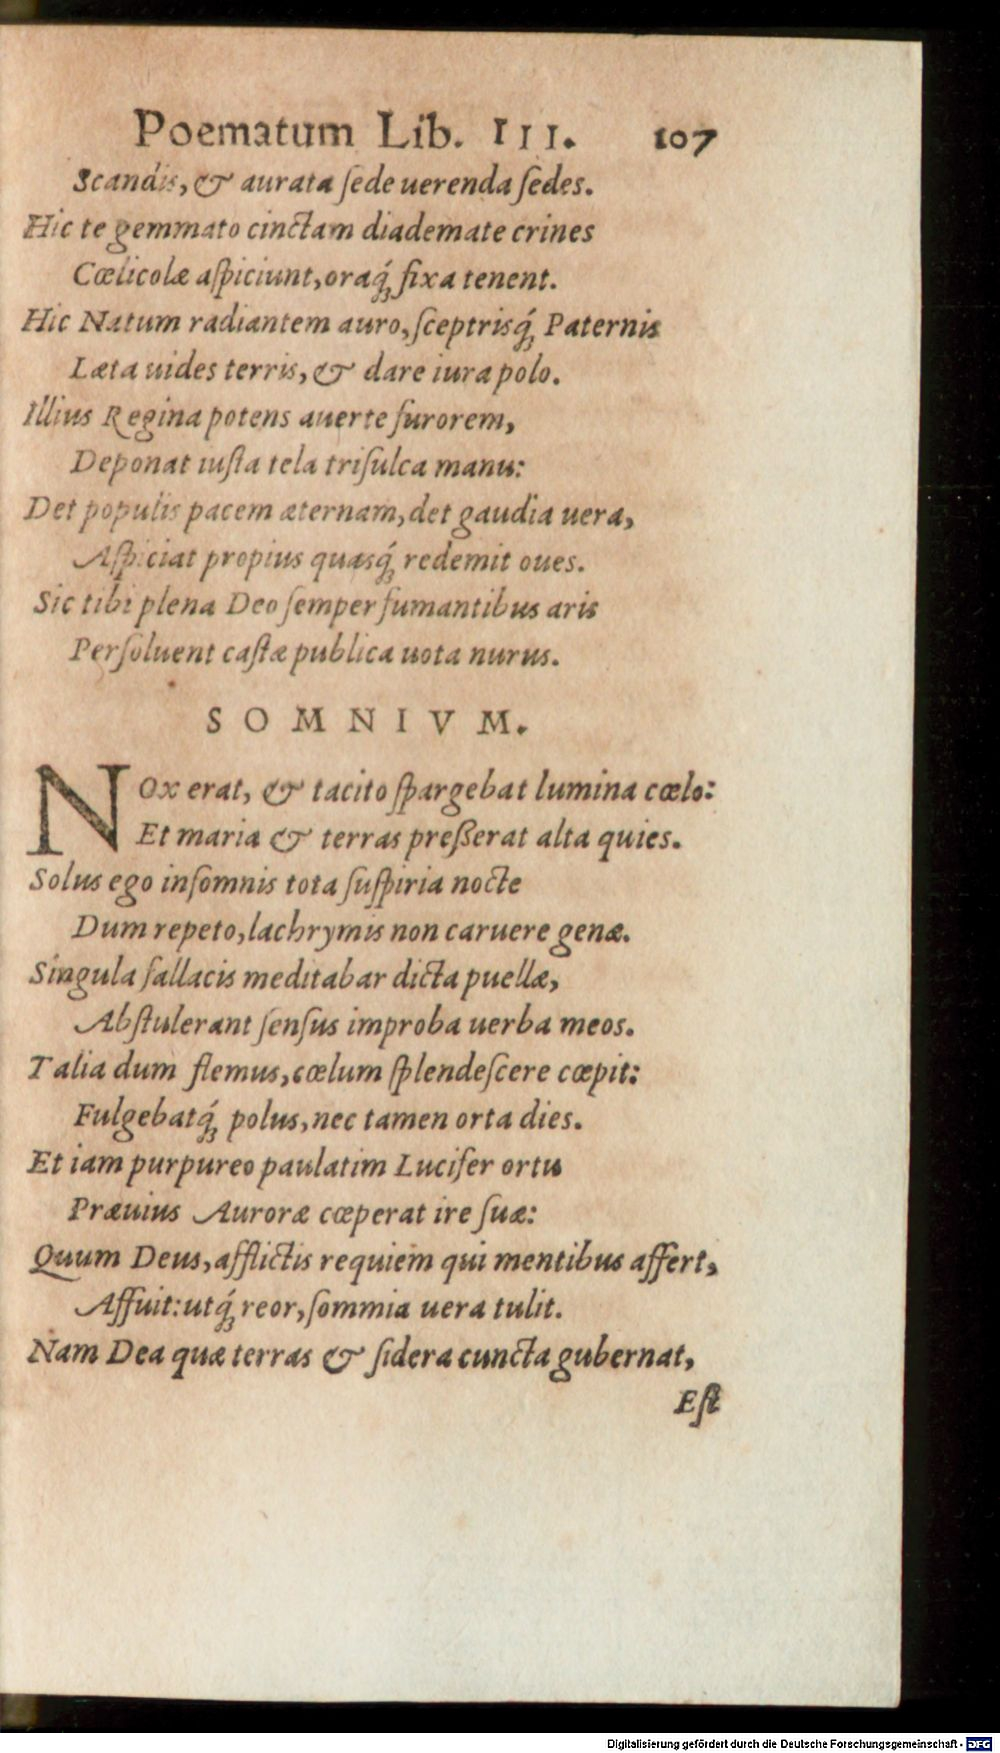 Poematum Lib. III. 107
Scandis, & aurata ſede uerenda ſedes.
Hic te gemmato cinctam diademate crines
Cœlicolæ aſpiciunt, oraq́ꝫ fixa tenent.
Hic Natum radiantem auro, ſceptrisq́ꝫ Paternis
Læta uides terris, & dare iura polo.
Illius Regina potens auerte furorem,
Deponat iuſta tela triſulca manu:
Det populis pacem æternam, det gaudia uera,
Aſpiciat propius quasq́ꝫ redemit oues.
Sic tibi plena Deo ſemper fumantibus aris
Perſoluent caſtæ publica uota nurus.
SOMNIVM.
NOx erat, & tacito ſpargebat lumina cœlo:
Et maria & terras preßerat alta quies.
Solus ego inſomnis tota ſuſpiria nocte
Dum repeto, lachrymis non caruere genæ.
Singula fallacis meditabar dicta puellæ,
Abſtulerant ſenſus improba uerba meos.
Talia dum flemus, cœlum ſplendeſcere cœpit:
Fulgebatq́ꝫ polus, nec tamen orta dies.
Et iam purpureo paulatim Lucifer ortu
Præuius Auroræ cœperat ire ſuæ:
Quum Deus, afflictis requiem qui mentibus affert,
Affuit: utq́ꝫ reor, ſommia uera tulit.
Nam Dea quæ terras & ſidera cuncta gubernat,
Eſt
Digitalisierung gefördert durch die Deutsche Forschungsgemeinschaft - DFG